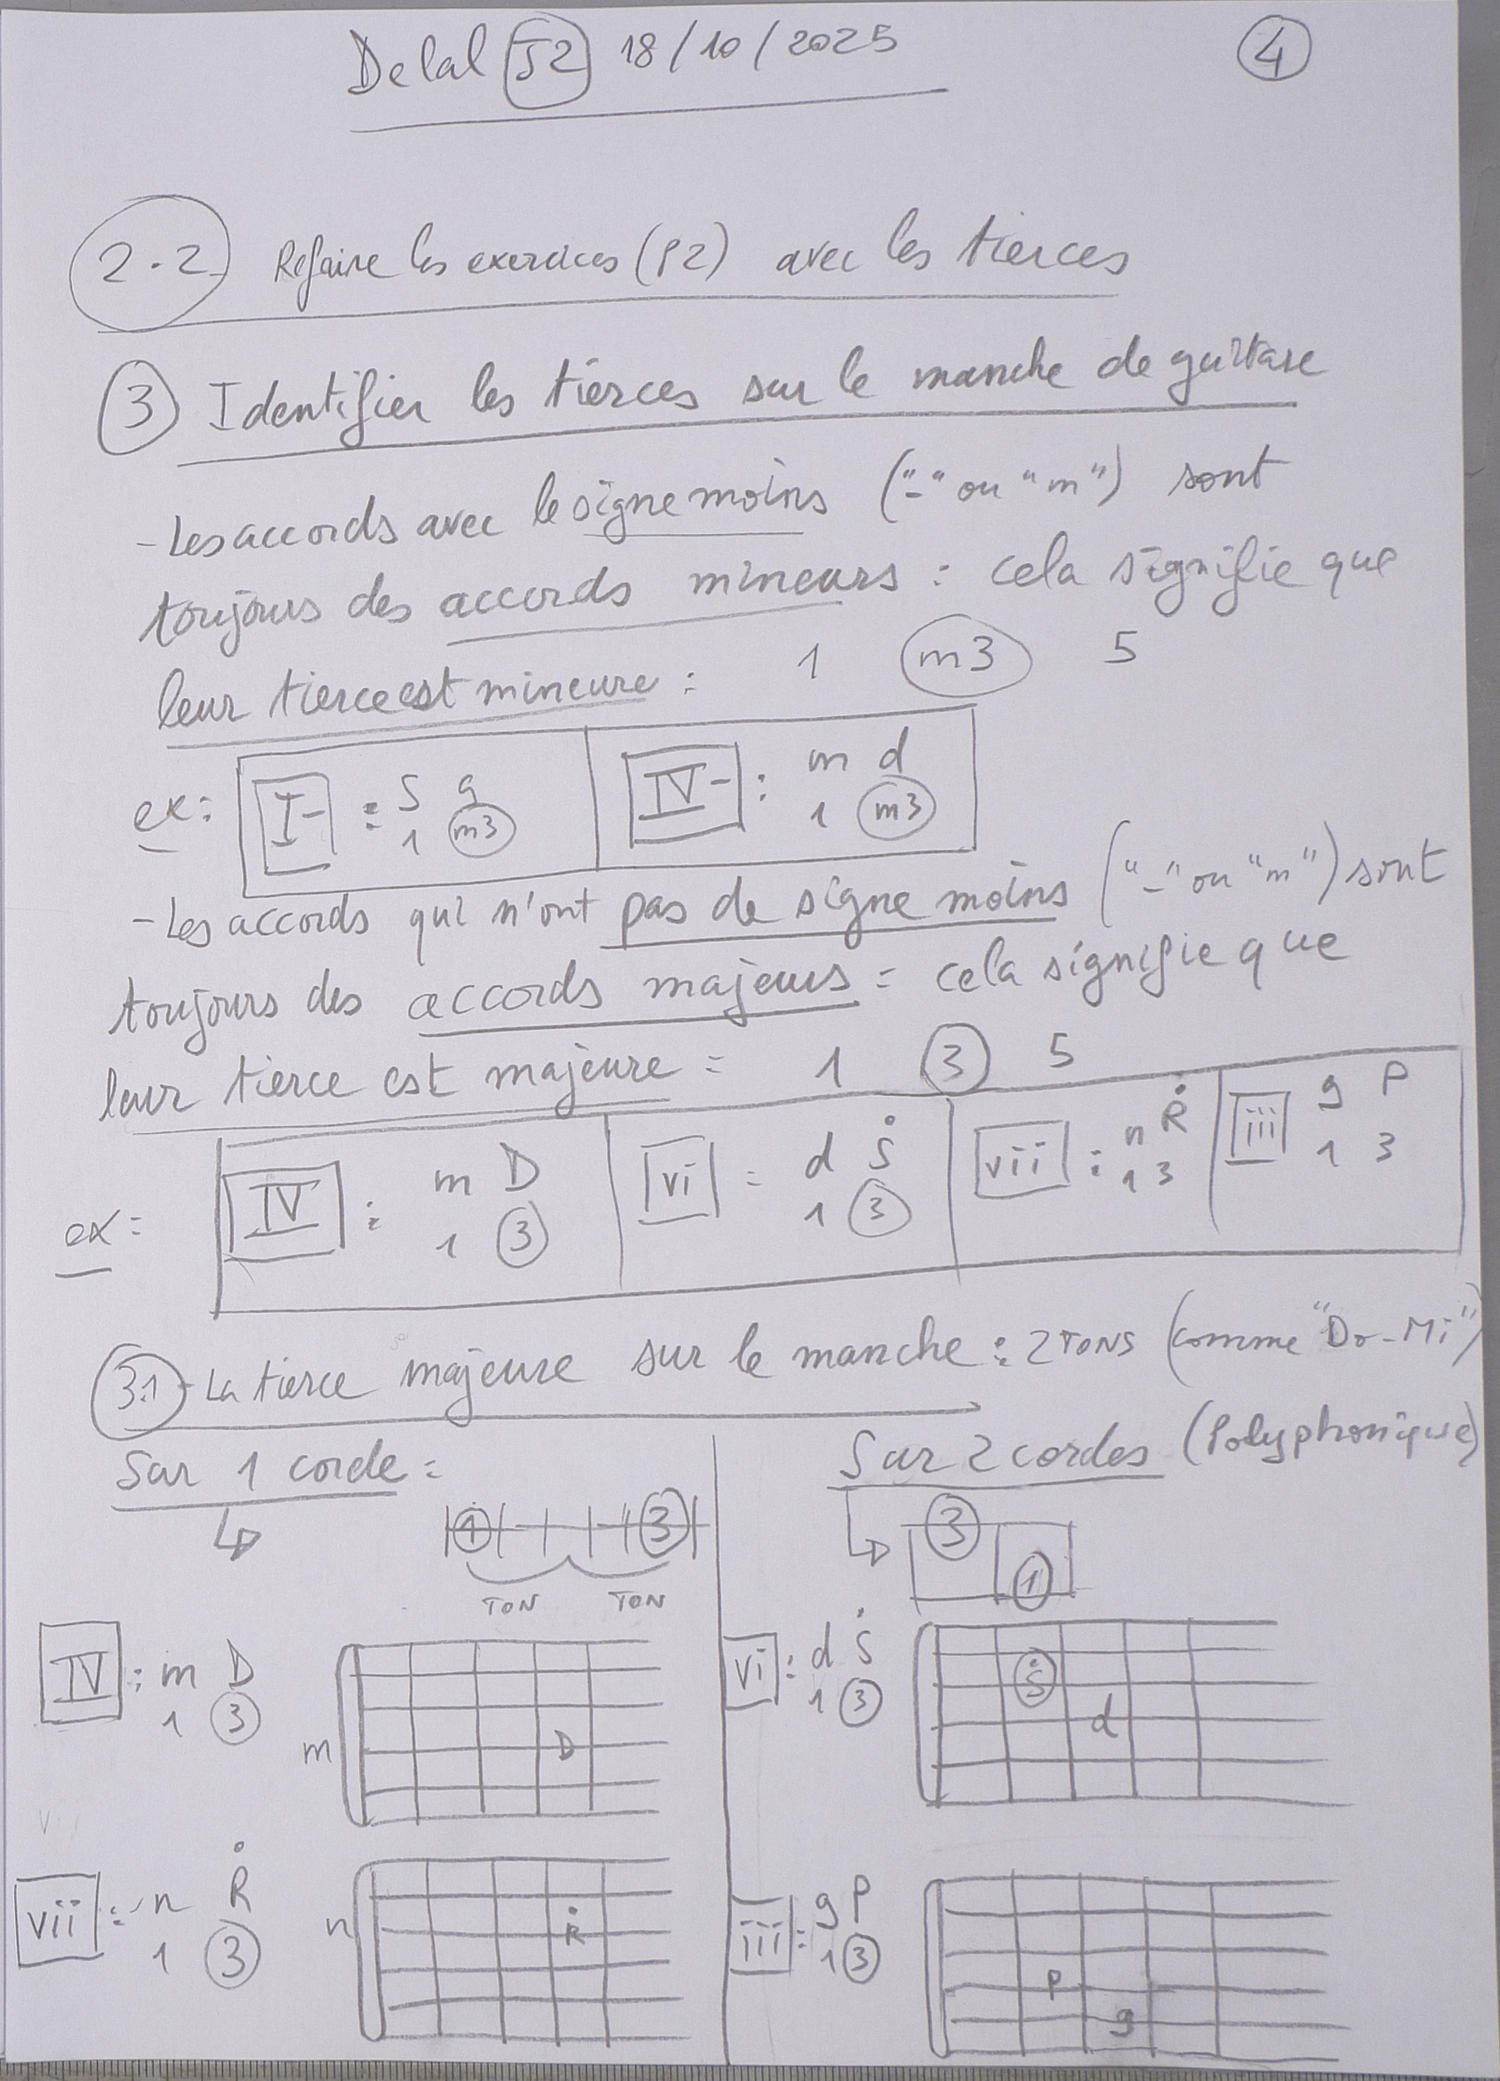 Delal J2 18/10/2025
4
2.2 Refaire les exercices (P2) avec les tierces
3 Identifier les tierces sur le manche de guitare
- Les accords avec le signe moins ("-" ou "m") sont
toujours des accords mineurs : cela signifie que
leur tierce est mineure : 1 m3 5
ex: I- : S g
1 m3
IV- : m d
1 m3
- Les accords qui n'ont pas de signe moins ("-" ou "m") sont
toujours des accords majeurs = cela signifie que
leur tierce est majeure = 1 3 5
ex: IV : m D
1 3
vi = d Ṡ
1 3
vii : n Ṙ
1 3
iii g P
1 3
3.1 - La tierce majeure sur le manche : 2 TONS (comme "Do-Mi")
Sur 1 corde =
1 3
TON TON
IV : m D
1 3
m D
vii : n Ṙ
1 3
n Ṙ
Sur 2 cordes (Polyphonique)
3
1
vi : d Ṡ
1 3
Ṡ
d
iii : g P
1 3
P
g